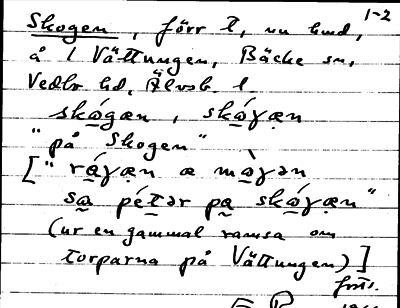 1-2
Skogen, förr t, nu hmd,
å l Vättungen, Bäcke sn,
Vedbo hd, Älvsb. l.
skógæn, skóɣæn
"på Skogen"
["ráɣæn æ mòɣən
sa pétər pa skóɣæn"
(ur en gammal ramsa om
torparna på Vättungen)]
forts.